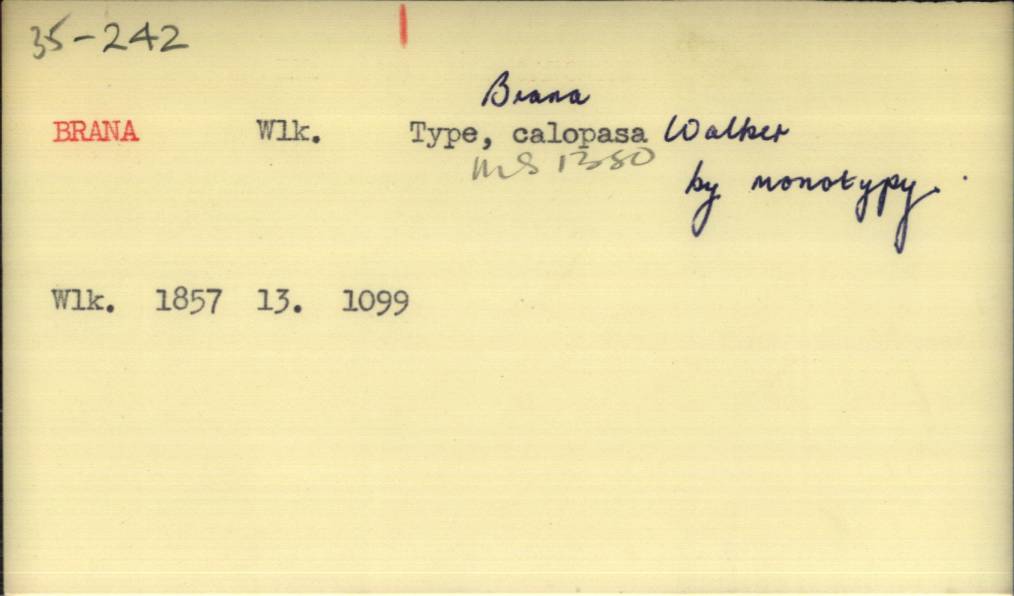 35-242
Brana
BRANA Wlk. Type, calopasa Walker
MS 1350
by monotypy.
Wlk. 1857 13. 1099